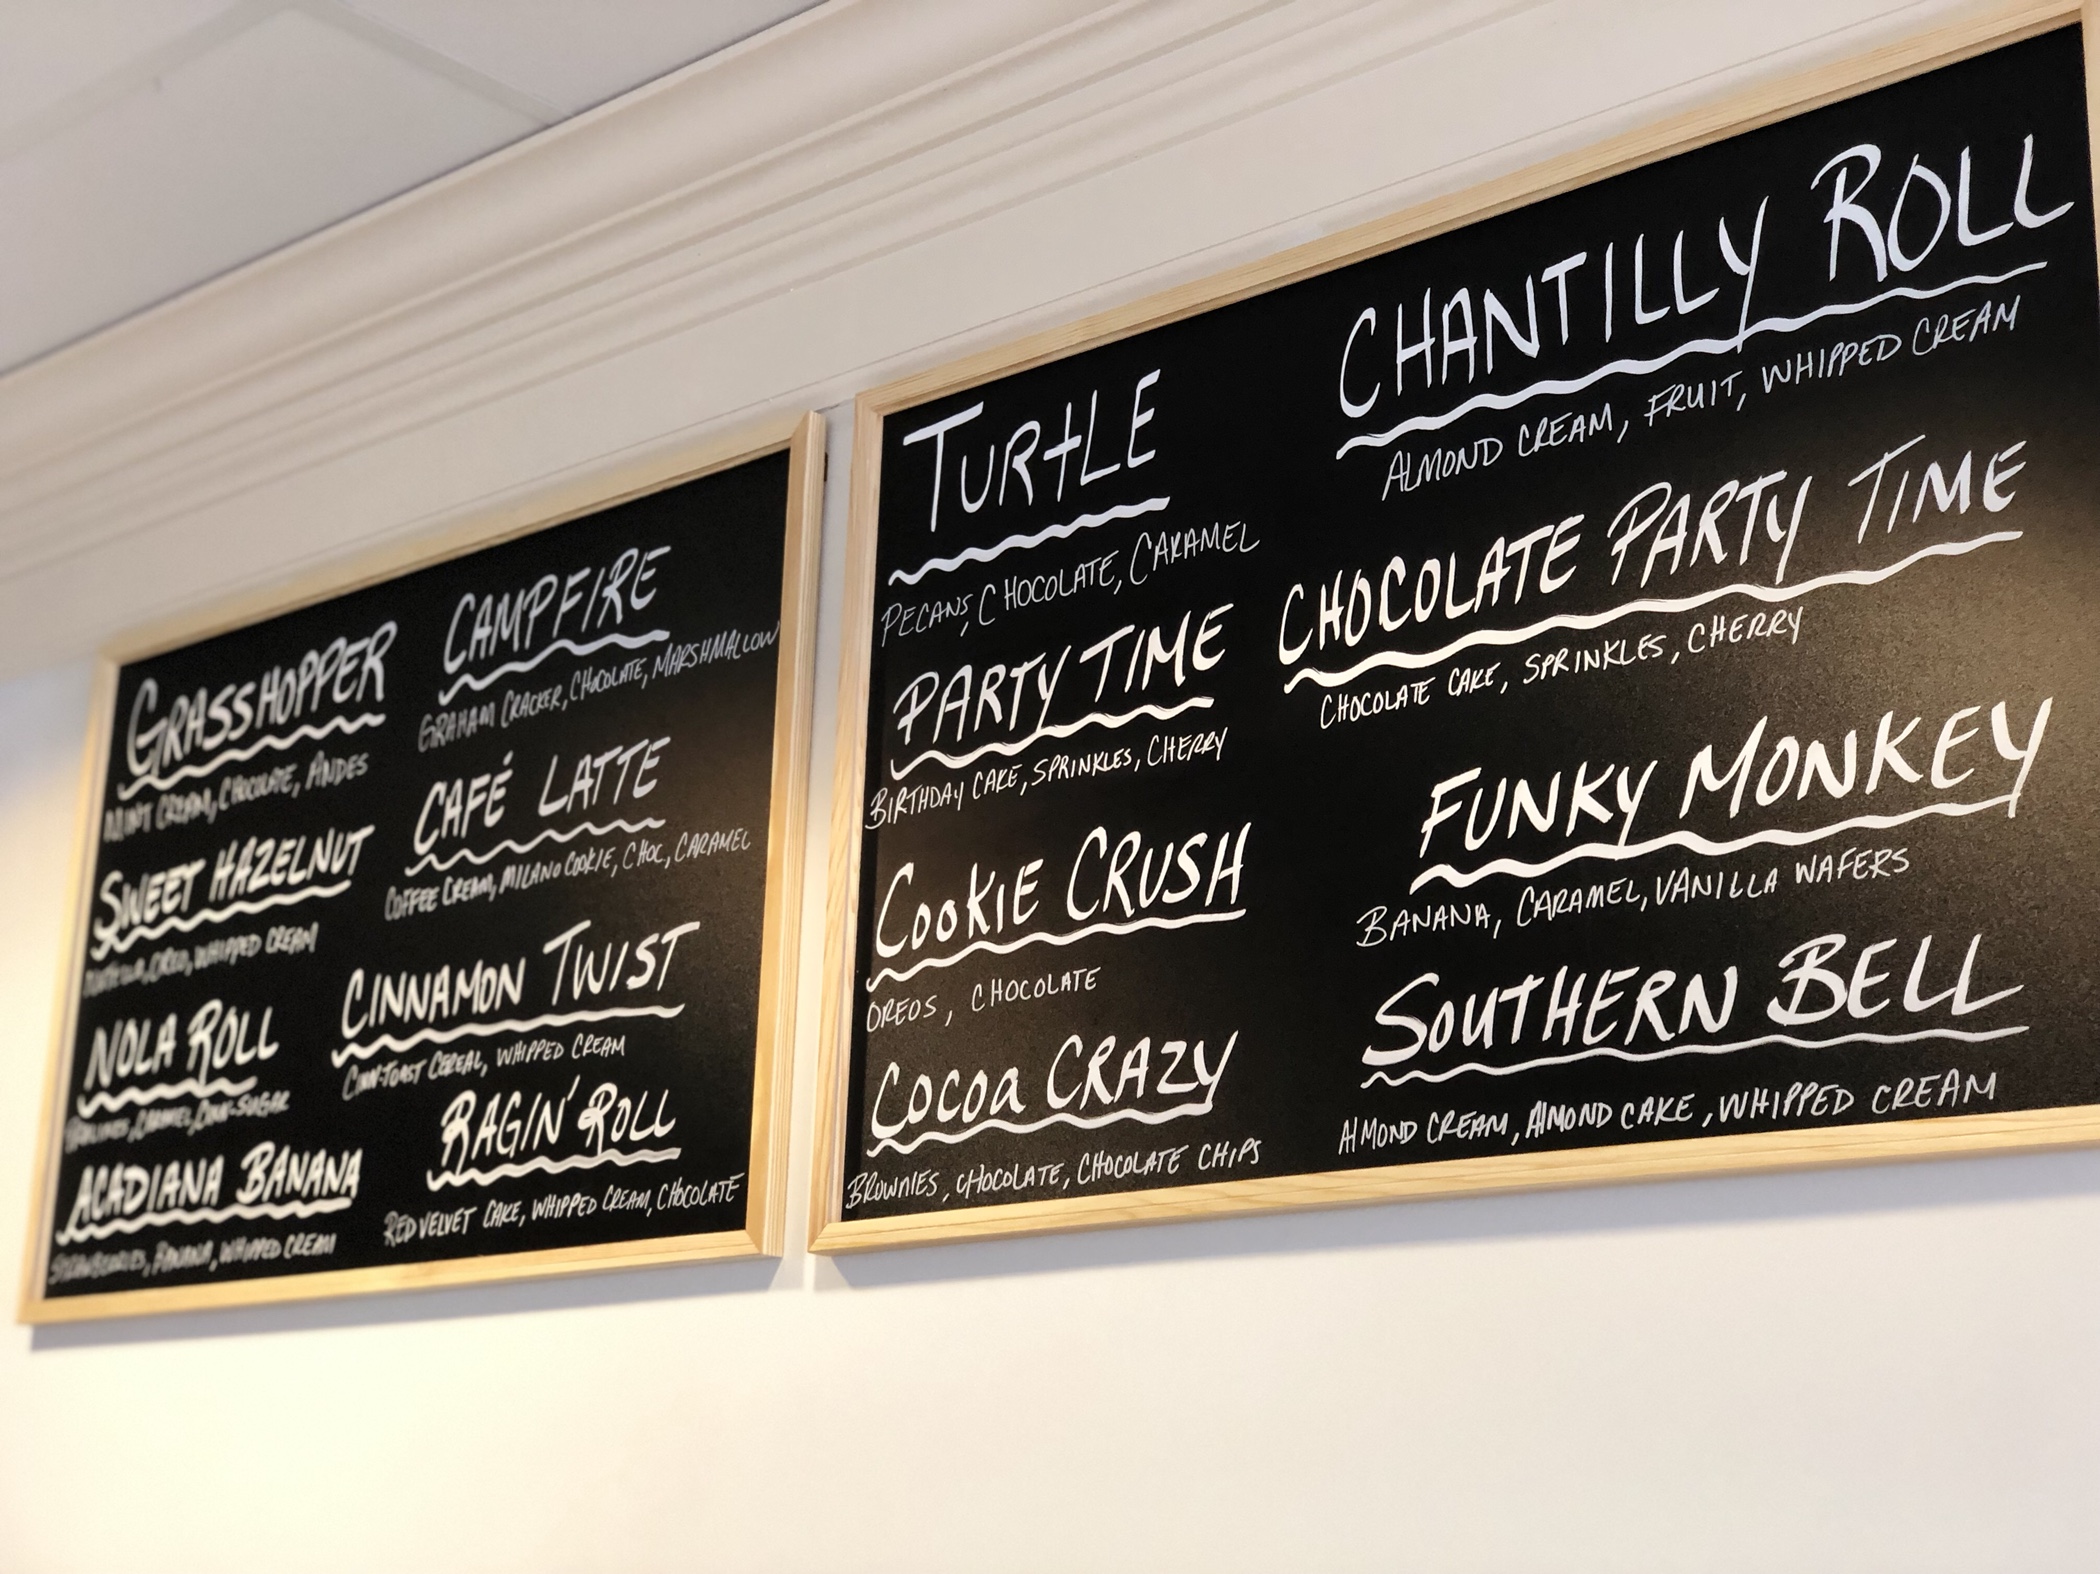 GRASSHOPPER
MINT CREAM, CHOCOLATE, ANDES
SWEET HAZELNUT
NUTELLA, OREO, WHIPPED CREAM
NOLA ROLL
PRALINES, CARAMEL, CINN-SUGAR
ACADIANA BANANA
STRAWBERRIES, BANANA, WHIPPED CREAM
CAMPFIRE
GRAHAM CRACKER, CHOCOLATE, MARSHMALLOW
CAFÉ LATTE
COFFEE CREAM, MILANO COOKIE, CHOC, CARAMEL
CINNAMON TWIST
CINN-TOAST CEREAL, WHIPPED CREAM
RAGIN' ROLL
RED VELVET CAKE, WHIPPED CREAM, CHOCOLATE
TURTLE
PECANS, CHOCOLATE, CARAMEL
PARTY TIME
BIRTHDAY CAKE, SPRINKLES, CHERRY
COOKIE CRUSH
OREOS, CHOCOLATE
COCOA CRAZY
BROWNIES, CHOCOLATE, CHOCOLATE CHIPS
CHANTILLY ROLL
ALMOND CREAM, FRUIT, WHIPPED CREAM
CHOCOLATE PARTY TIME
CHOCOLATE CAKE, SPRINKLES, CHERRY
FUNKY MONKEY
BANANA, CARAMEL, VANILLA WAFERS
SOUTHERN BELL
ALMOND CREAM, ALMOND CAKE, WHIPPED CREAM